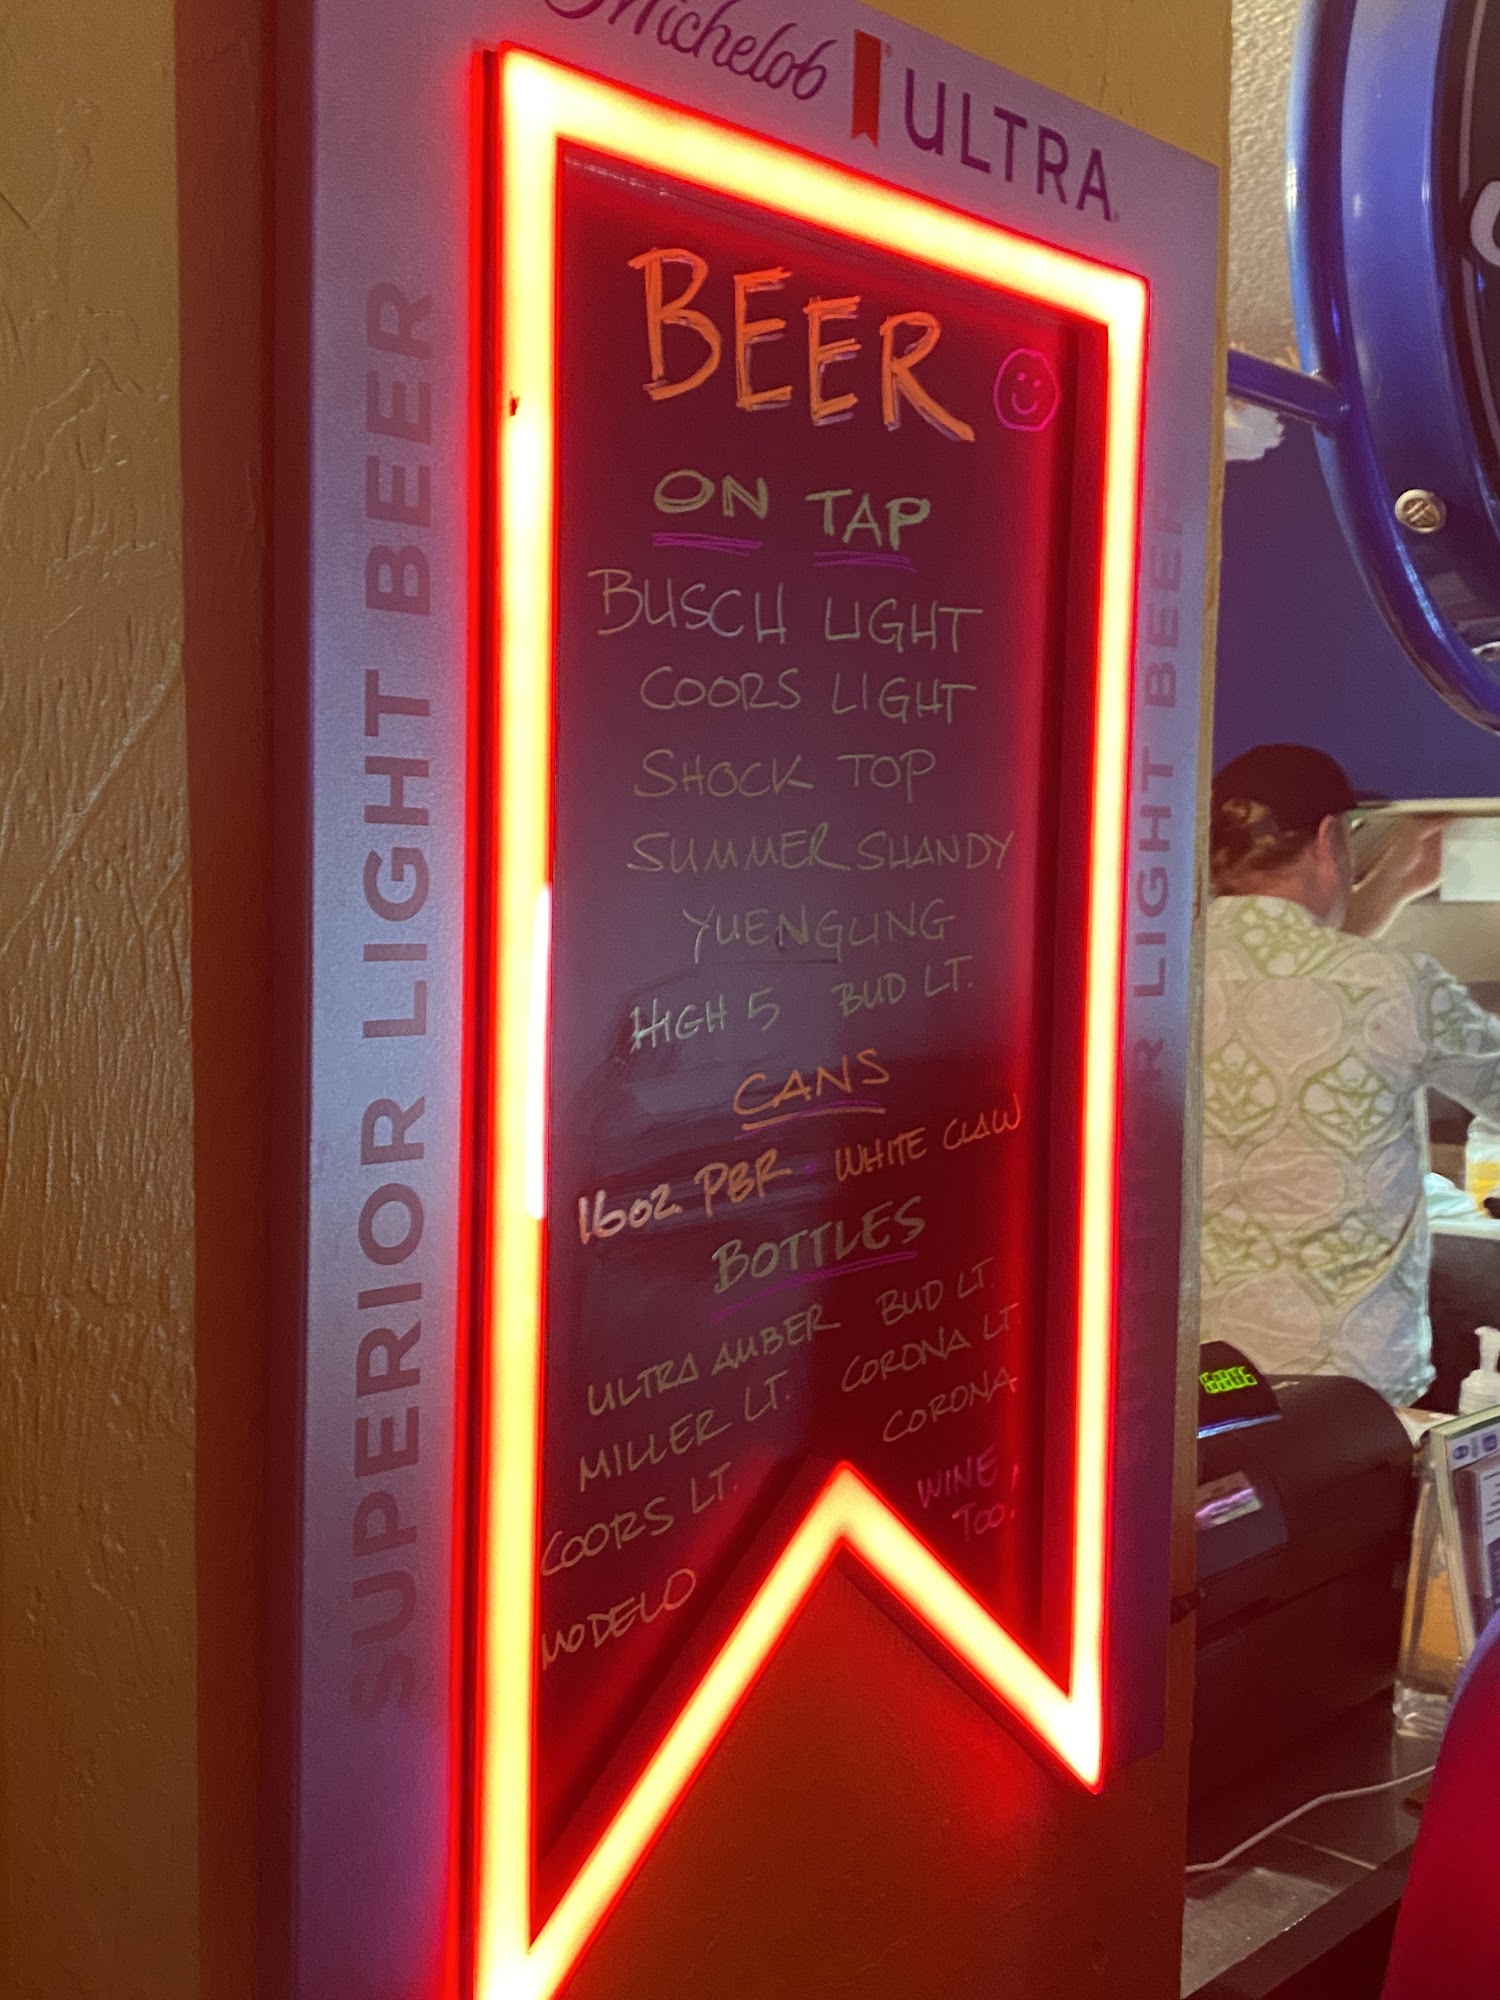 Michelob ULTRA
SUPERIOR LIGHT BEER
BEER
ON TAP
BUSCH LIGHT
COORS LIGHT
SHOCK TOP
SUMMER SHANDY
YUENGLING
HIGH 5 BUD LT.
CANS
16oz. PBR · WHITE CLAW
BOTTLES
ULTRA AMBER BUD LT.
MILLER LT. CORONA LT.
COORS LT. CORONA
MODELO WINE,
TOO!
SUPERIOR LIGHT BEER